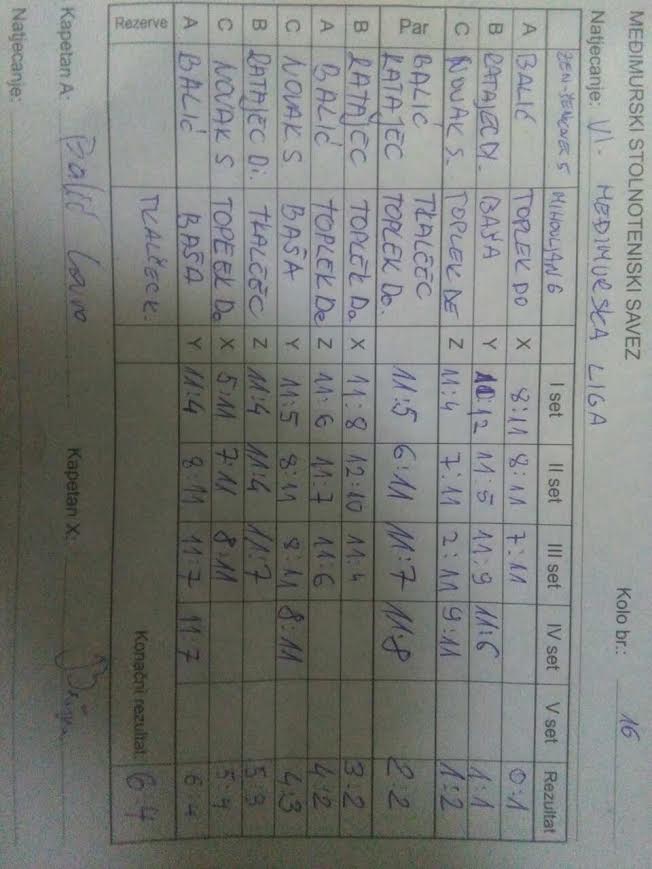 MEĐIMURSKI STOLNOTENISKI SAVEZ
Natjecanje: VI. MEĐIMURSKA LIGA Kolo br.: 16
MIHOVLJAN 6 I set II set III set IV set V set Rezultat
A BALIĆ TOPLEK DO X 8:11 8:11 7:11 0:1
B RATAJEC DI. BAŠA Y 10:12 11:5 11:9 11:6 1:1
C NOVAK S. TOPLEK DE Z 11:4 7:11 2:11 9:11 1:2
Par BALIĆ RATAJEC TKALČEC TOPLEK DO. 11:5 6:11 11:7 11:8 2:2
B RATAJEC TOPLEK DO X 11:8 12:10 11:4 3:2
A BALIĆ TOPLEK DE Z 11:6 11:7 11:6 4:2
C NOVAK S BAŠA Y 11:5 8:11 8:11 8:11 4:3
B RATAJEC DI. TKALČEC Z 11:4 11:4 11:7 5:3
C NOVAK S TOPLEK DO X 5:11 7:11 8:11 5:4
A BALIĆ BAŠA Y 11:4 8:11 11:7 11:7 6:4
Rezerve TKALČEC K. Konačni rezultat: 6:4
Kapetan A: Balić Kapetan X:
Natjecanje: